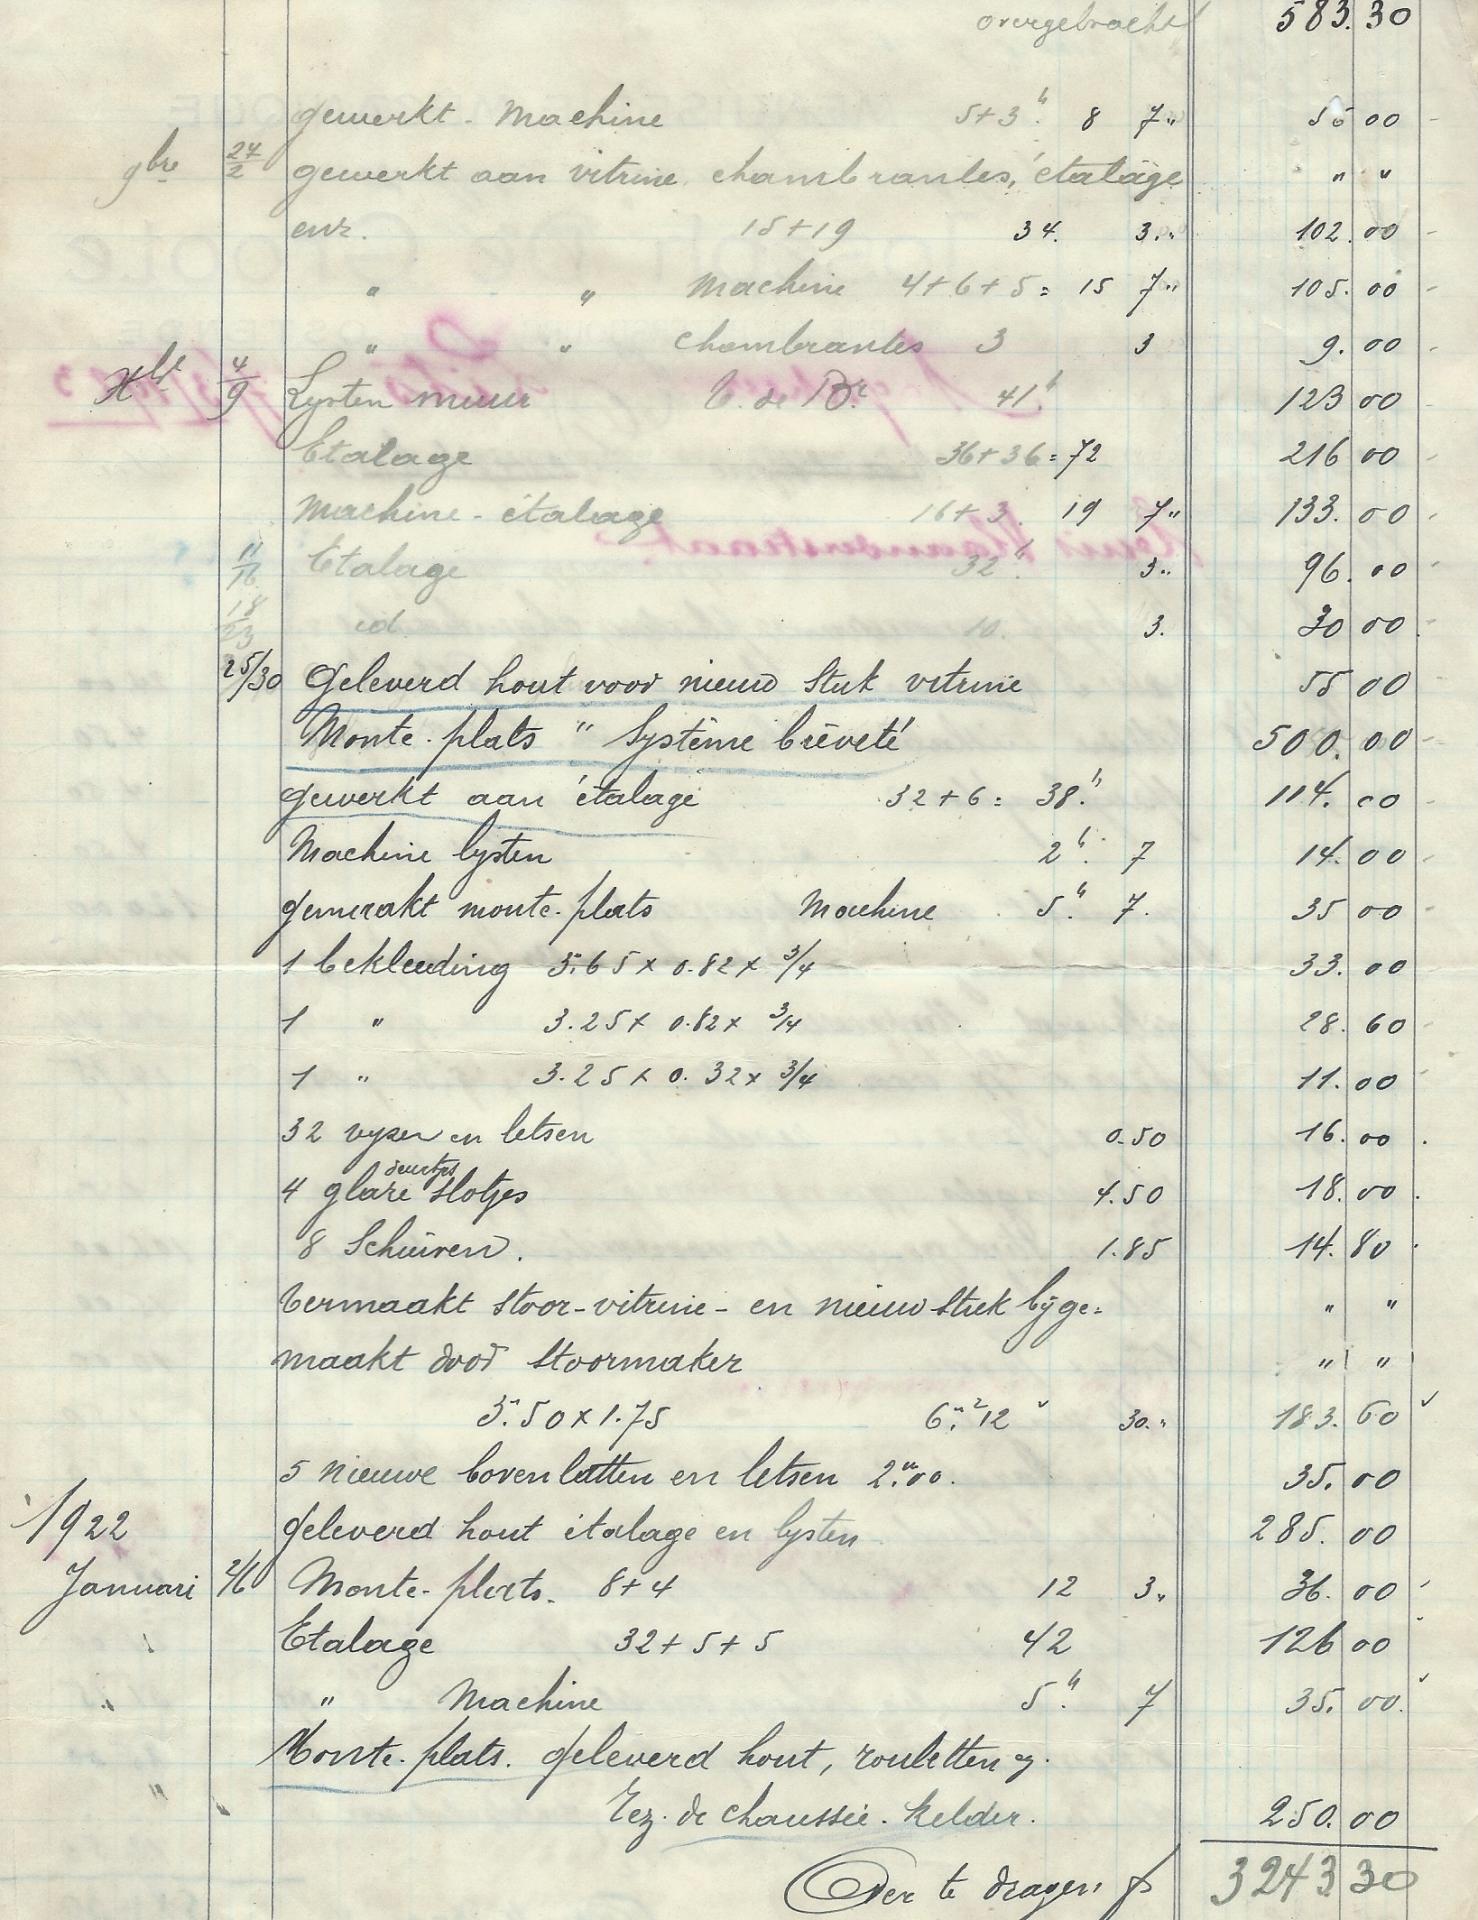 overgebracht 583.30
gewerkt - Machine 5+3 h. 8 7" 56 00
9bre 27/2 gewerkt aan vitrine, chambrantes, étalage " "
enz. 15+19 34. 3." 102.00
" " Machine 4+6+5 = 15 7" 105.00
" " chambrantes 3 3 9.00
Xbr 4/9 Lysten muur V. de Br. 41 h. 123 00
Etalage 36+36 = 72 216 00
Machine - étalage 16+3. 19 7" 133.00
11/16 Etalage 32 h. 3" 96.00
18/23 id. 10. 3. 30 00
25/30 Geleverd hout voor nieuw stuk vitrine 55 00
Monte-plats " Système brèveté 500.00
gewerkt aan étalage 32+6 = 38 h. 114.00
Machine lysten 2 h. 7 14.00
gemaakt monte-plats Machine 5 h. 7. 35 00
1 bekleeding 3.65 x 0.82 x 3/4 33.00
1 " 3.25 x 0.82 x 3/4 28.60
1 " 3.25 x 0.32 x 3/4 11.00
32 vyzen en letsen 0.50 16.00
deurtjes
4 glaze slotjes 4.50 18.00
8 Schuiven. 1.85 14.80
Vermaakt stoor-vitrine - en nieuw stuk byge= " "
maakt door stoormaker " "
3.50 x 1.75 6 m2 12 30." 183.60
5 nieuwe bovenlatten en letsen 2m00. 35.00
1922 geleverd hout étalage en lysten 285.00
Januari 2/6 Monte-plats. 8+4 12 3" 36.00
Etalage 32+5+5 42 126 00
" Machine 5 h. 7 35.00
Monte-plats. geleverd hout, rouletten
Rez-de-chaussée. Kelder. 250.00
Over te dragen fs 3243 30